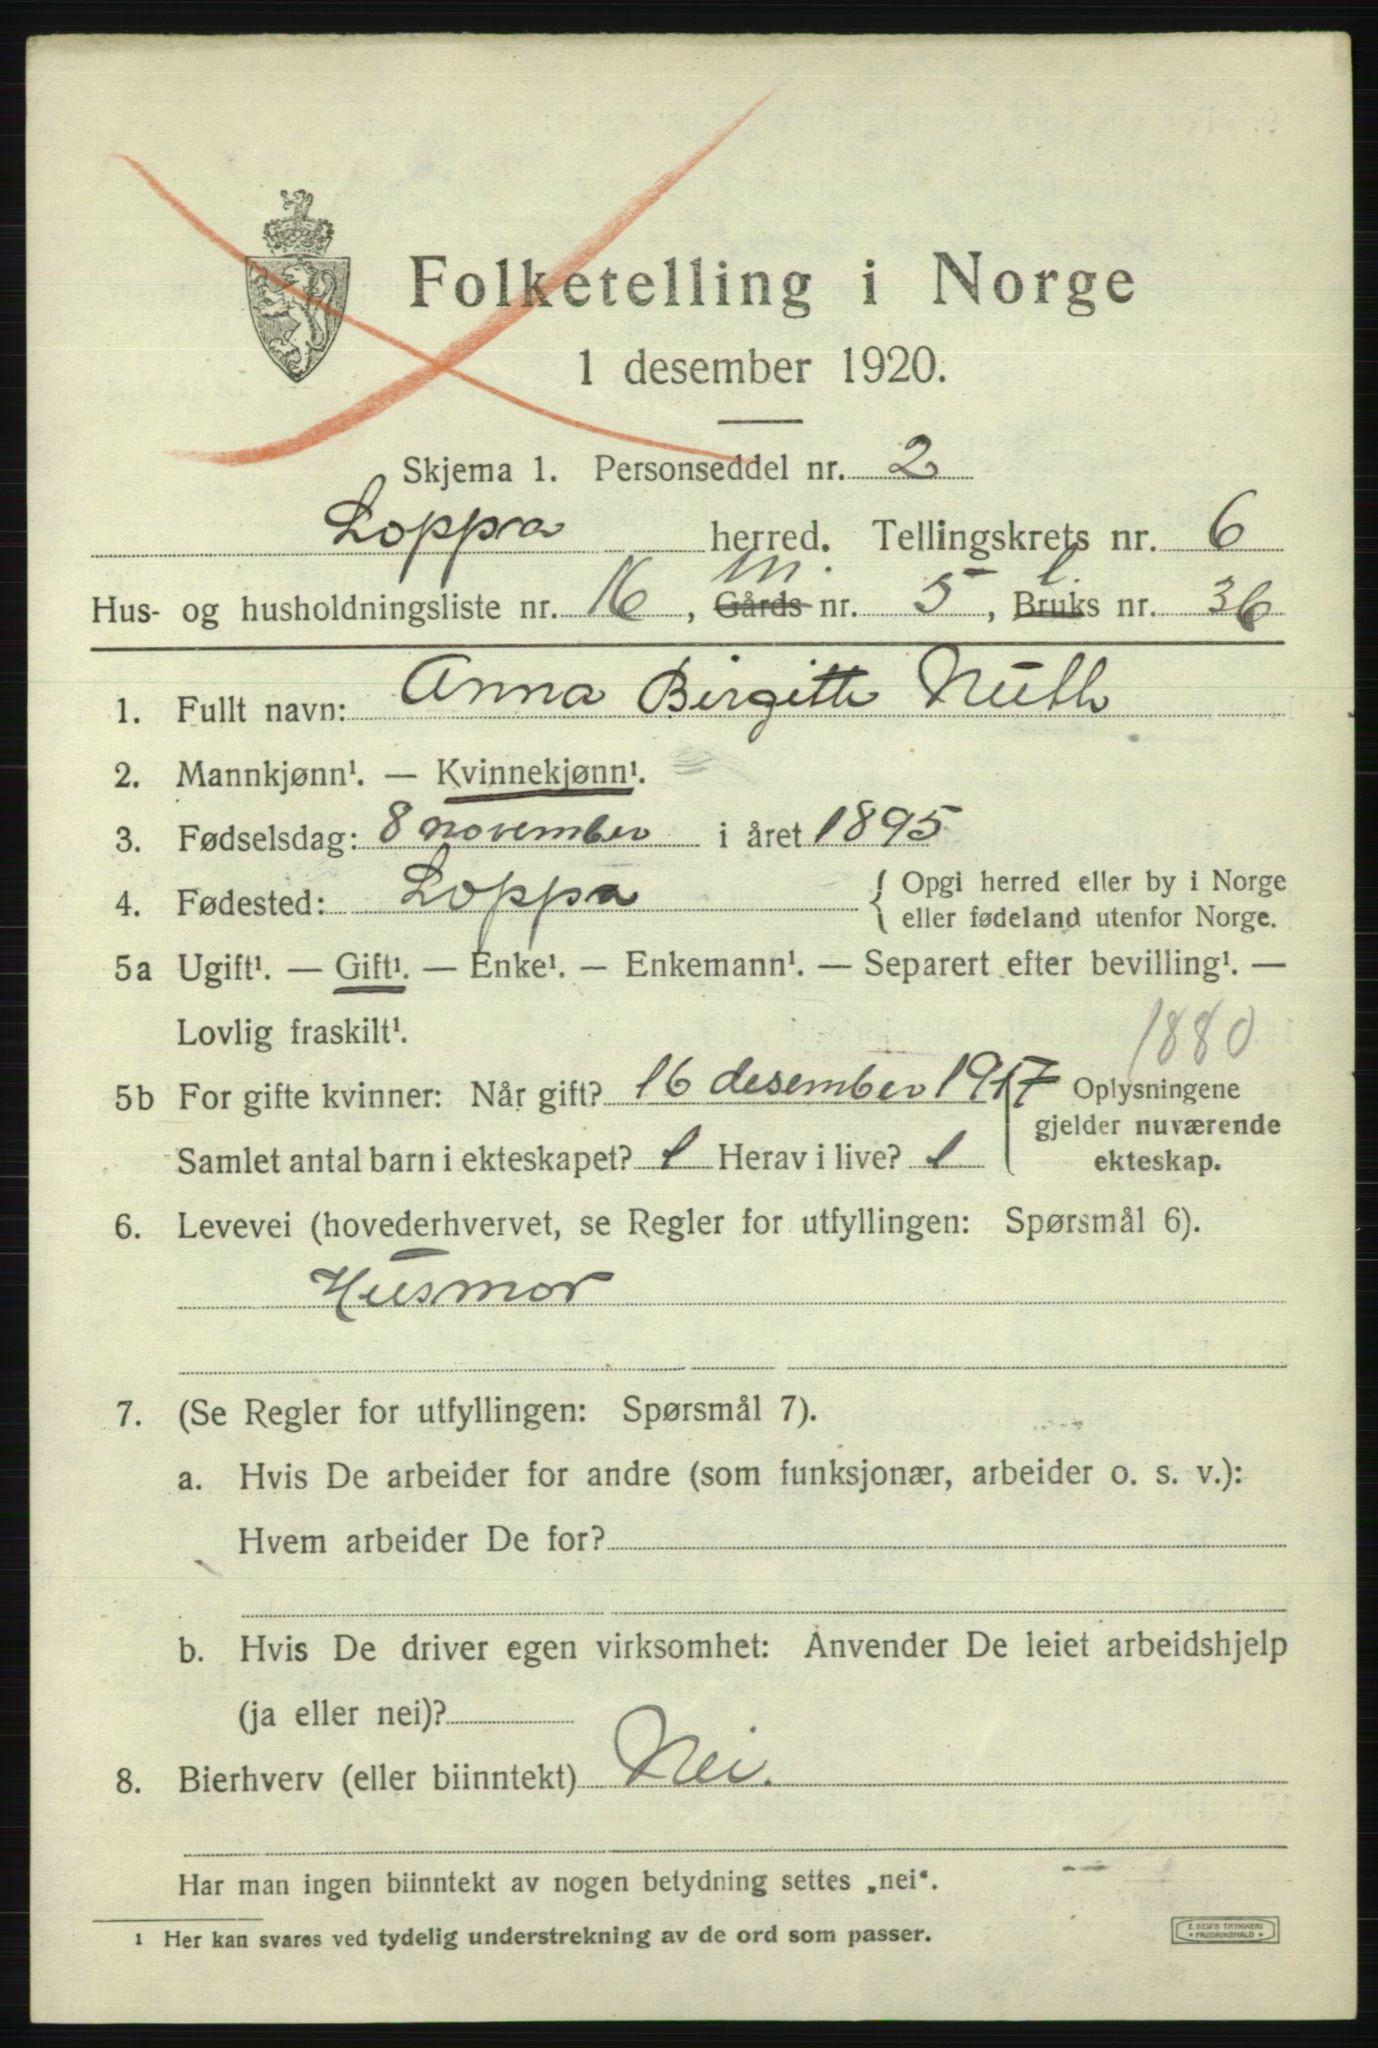 Folketelling i Norge
1 desember 1920.
Skjema 1. Personseddel nr. 2
Loppa herred. Tellingskrets nr. 6
m. l.
Hus- og husholdningsliste nr. 16, Gårds nr. 5, Bruks nr. 36
1. Fullt navn: Anna Birgitte Nuth
2. Mannkjønn¹. — Kvinnekjønn¹.
3. Fødselsdag: 8 november i året 1895
4. Fødested: Loppa { Opgi herred eller by i Norge
eller fødeland utenfor Norge.
5a Ugift¹. — Gift¹. — Enke¹. — Enkemann¹. — Separert efter bevilling¹. —
Lovlig fraskilt¹.
1880
5b For gifte kvinner: Når gift? 16 desember 1917 Oplysningene
gjelder nuværende
Samlet antal barn i ekteskapet? 1 Herav i live? 1 ekteskap.
6. Levevei (hovederhvervet, se Regler for utfyllingen: Spørsmål 6).
Husmor
7. (Se Regler for utfyllingen: Spørsmål 7).
a. Hvis De arbeider for andre (som funksjonær, arbeider o. s. v.):
Hvem arbeider De for?
b. Hvis De driver egen virksomhet: Anvender De leiet arbeidshjelp
(ja eller nei)?
8. Bierhverv (eller biinntekt) Nei.
Har man ingen biinntekt av nogen betydning settes „nei“.
1 Her kan svares ved tydelig understrekning av de ord som passer.
E. SEM'S TRYKKERI
• FREDRIKSHALD •